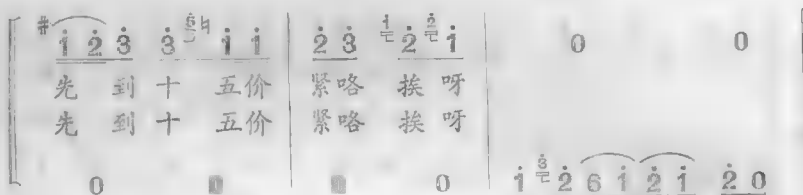 #1̇ 2̇ 3̇ 3̇ 5̇ ♮1̇ 1̇ 2̇ 3̇ 1̇ 2̇ 2̇ 1̇ 0 0
先 到 十 五价 紧咯 挨呀
先 到 十 五价 紧咯 挨呀
0 0 1̇ 3̇ 2̇ 6 1̇ 2̇ 1̇ 2̇ 0